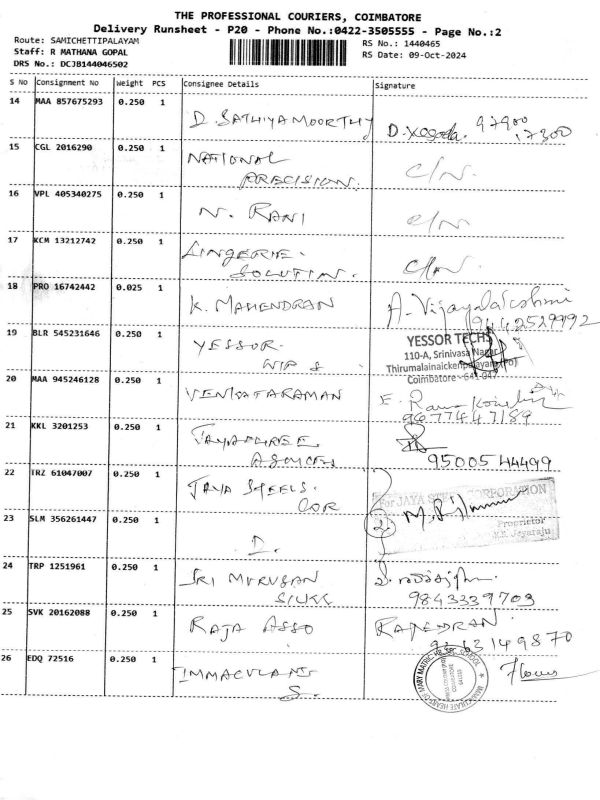 THE PROFESSIONAL COURIERS, COIMBATORE
Delivery Runsheet - P20 - Phone No.:0422-3505555 - Page No.:2
Route: SAMICHETTIPALAYAM
Staff: R MATHANA GOPAL
DRS No.: DCJB144046502
RS No.: 1440465
RS Date: 09-Oct-2024
S No Consignment No Weight PCS Consignee Details Signature
14 MAA 857675293 0.250 1 D. SATHIYAMOORTHY 97900
17300
15 CGL 2016290 0.250 1 NATIONAL
PRECISION. C/N.
16 VPL 405340275 0.250 1 N. RANI C/N
17 KCM 13212742 0.250 1 LINGERIE.
SOLUTION. C/N.
18 PRO 16742442 0.025 1 K. MAHENDRAN A. Vijayalakshmi
9442529992
19 BLR 545231646 0.250 1 YESSOR.
YESSOR TECHS
110-A, Srinivasa Nagar
Thirumalainaickenpalayam (PO)
Coimbatore - 641 047
20 MAA 945246128 0.250 1 VENKATARAMAN E.
9677447189
21 KKL 3201253 0.250 1 JAYASHREE
9500544499
22 TRZ 61047007 0.250 1 JAYA STEELS.
COR
For JAYA STEEL CORPORATION
23 SLM 356261447 0.250 1 D. 2
Proprietor
Jayaraju
24 TRP 1251961 0.250 1 SRI MURUGAN
9843339703
25 SVK 20162088 0.250 1 RAJA ASSO RAJENDRAN
9363149870
26 EDQ 72516 0.250 1 IMMACULANT
S.
IMMACULATE HEART OF MARY MATRIC. HR. SEC. SCHOOL